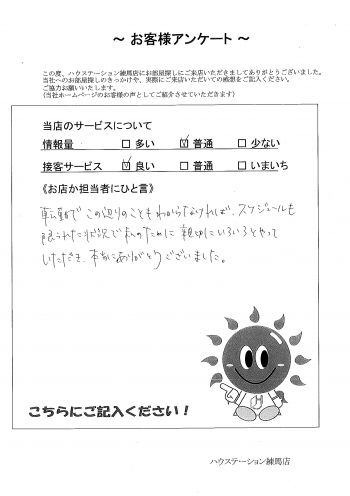 ～ お客様アンケート ～
この度、ハウステーション練馬店にお部屋探しにご来店いただきましてありがとうございました。
当社へのお部屋探しのきっかけや、実際にご来店いただいての感想をご記入ください。
ご協力お願いいたします。
(当社ホームページのお客様の声としてご紹介させていただきます)
当店のサービスについて
情報量 □ 多い ☑ 普通 □ 少ない
接客サービス ☑ 良い □ 普通 □ いまいち
《お店か担当者にひと言》
転勤で この辺りのことも わからなければ、スケジュールも
限られた状況で 私のために 親切に いろいろとやって
いただき、本当にありがとうございました。
こちらにご記入ください！
ハウステーション練馬店